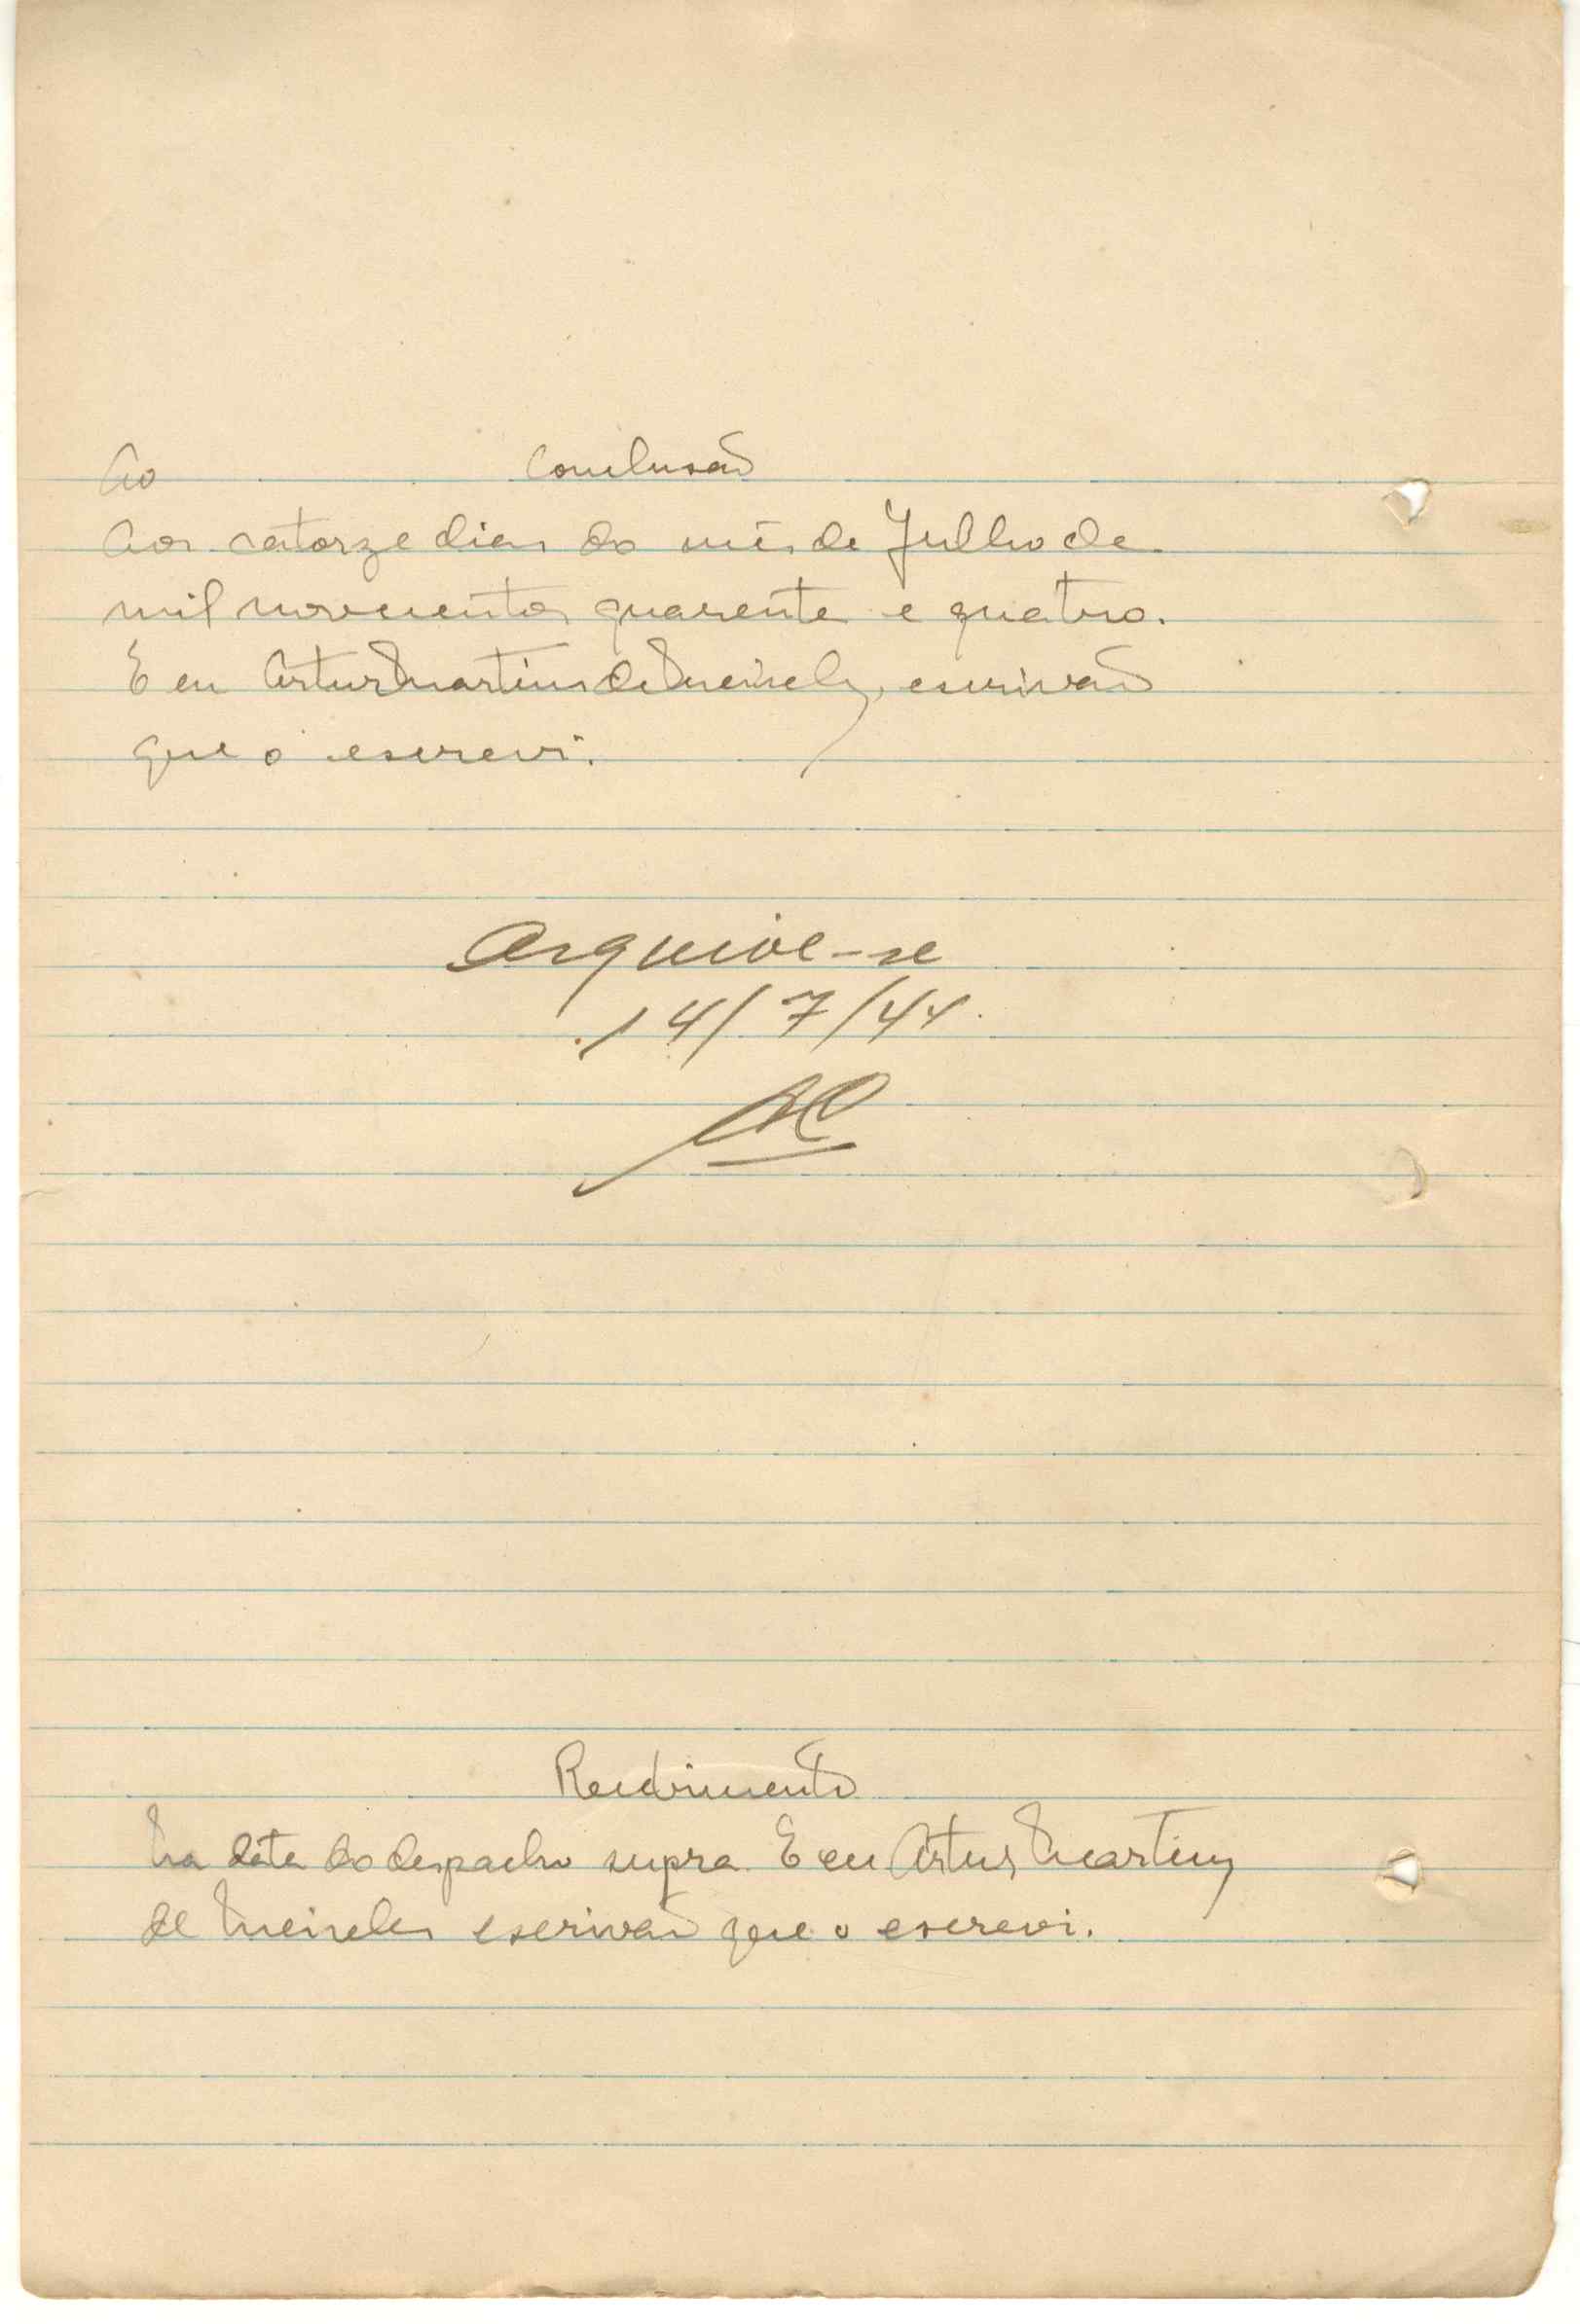 Ao Conclusão
Aos catorze dias do mês de Julho de
mil novecentos quarenta e quatro.
E eu Artur Martins de Meireles, escrivão
que o escrevi.
Arquive-se
14/7/44.
AC
Recebimento
Na data do despacho supra. E eu Artur Martins
de Meireles escrivão que o escrevi.